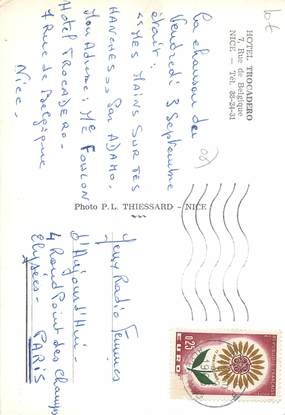 HOTEL TROCADERO
7, Rue de Belgique
NICE - Tél. 88-24-31
La chanson du
Vendredi 3 Septembre
était:
"MES MAINS SUR TES
HANCHES" par ADAMO.
Mon adresse: Me FOULON
Hotel TROCADERO-
7 Rue de Belgique
Nice-
Photo P. L. THIESSARD - NICE
Jeux Radio Femmes
d'Aujourd'Hui-
4 Rond Point des Champs
Elysées- PARIS
0,25
EUROPA